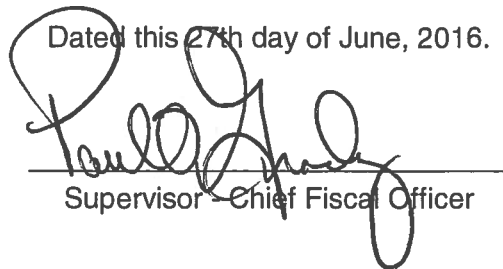 Dated this 27th day of June, 2016.
Supervisor - Chief Fiscal Officer